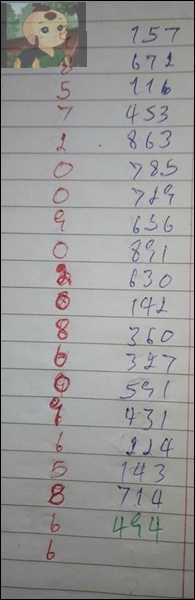 157
8 672
5 116
7 453
2 863
0 785
0 729
9 656
0 891
630
142
8 360
6 327
591
9 431
6 224
5 143
8 714
6 494
6